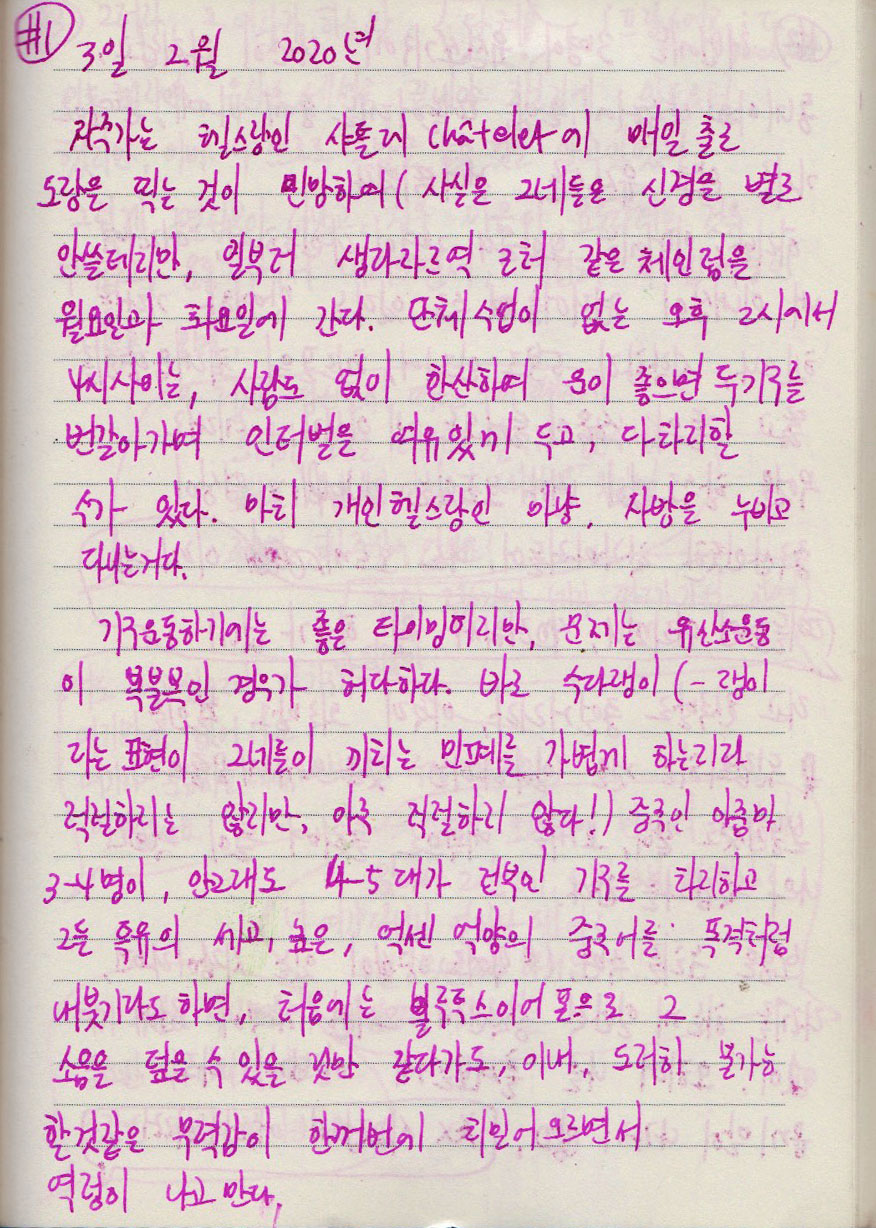 #1
3일 2월 2020년
자주가는 헬스장인 샤틀레 Châtelet에 매일 출근
도장을 찍는 것이 민망하여 (사실은 그네들은 신경을 별로
안쓸테지만, 일부러 생라자르역 근처 같은 체인점을
월요일과 화요일에 간다. 단체수업이 없는 오후 2시에서
4시사이는, 사람도 없이 한산하여 운이 좋으면 두기구를
번갈아가며 인터벌을 여유있게 두고, 다 차지할
수가 있다. 마치 개인헬스장인 마냥, 사방을 누비고
다니는거다.
기구운동하기에는 좋은 타이밍이지만, 문제는 유산소운동
이 복불복인 경우가 허다하다. 바로 수다쟁이 (-쟁이
라는 표현이 그네들이 끼치는 민폐를 가볍게 하는지라
적절하지는 않지만, 아주 적절하지 않다!) 중국인 아줌마
3-4명이, 안그래도 4-5대가 전부인 기구를 차지하고
그들 특유의 세고, 높은, 억센 억양의 중국어를 폭격처럼
내붓기라도 하면, 처음에는 블루투스이어폰으로 그
소음을 덮을 수 있을 것만 같다가도, 이내, 도저히 불가능
할것같은 무력감이 한꺼번에 치밀어오르면서
역정이 나고 만다.